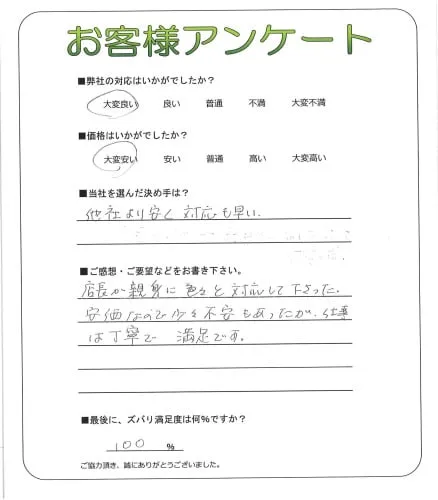 お客様アンケート
■弊社の対応はいかがでしたか？
大変良い 良い 普通 不満 大変不満
■価格はいかがでしたか？
大変安い 安い 普通 高い 大変高い
■当社を選んだ決め手は？
他社より安く対応も早い.
■ご感想・ご要望などをお書き下さい。
店長が親身に色々と対応して下さった.
安価なので少々不安もあったが、仕事
は丁寧で 満足です。
■最後に、ズバリ満足度は何%ですか？
100 %
ご協力頂き、誠にありがとうございました。